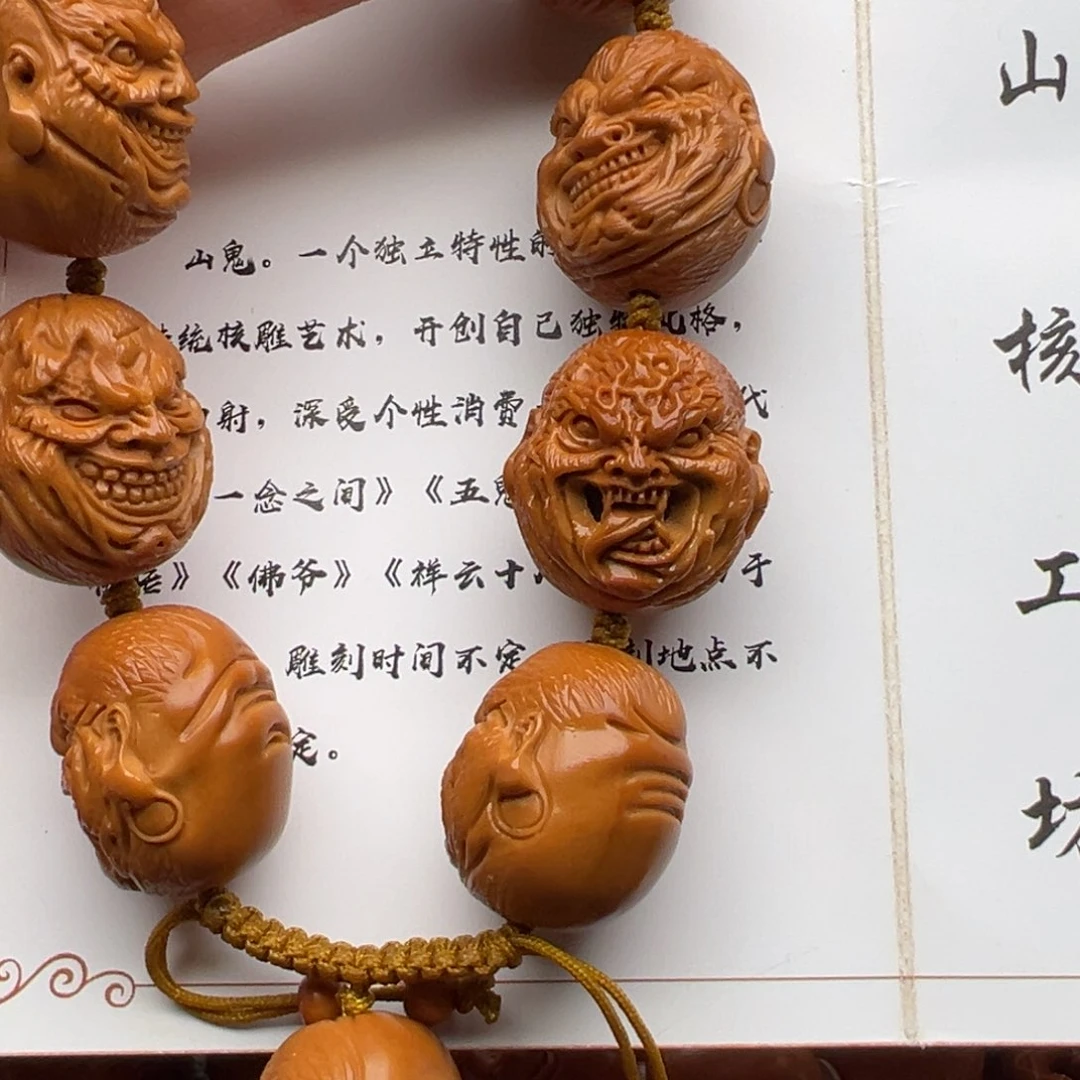 山鬼。一个独立特性
统核雕艺术，开创自己独 风格，
射，深受个性消费 代
一念之间》《五鬼
》《佛爷》《祥云十 于
雕刻时间不定 刻地点不
定。
山
核
工
坊